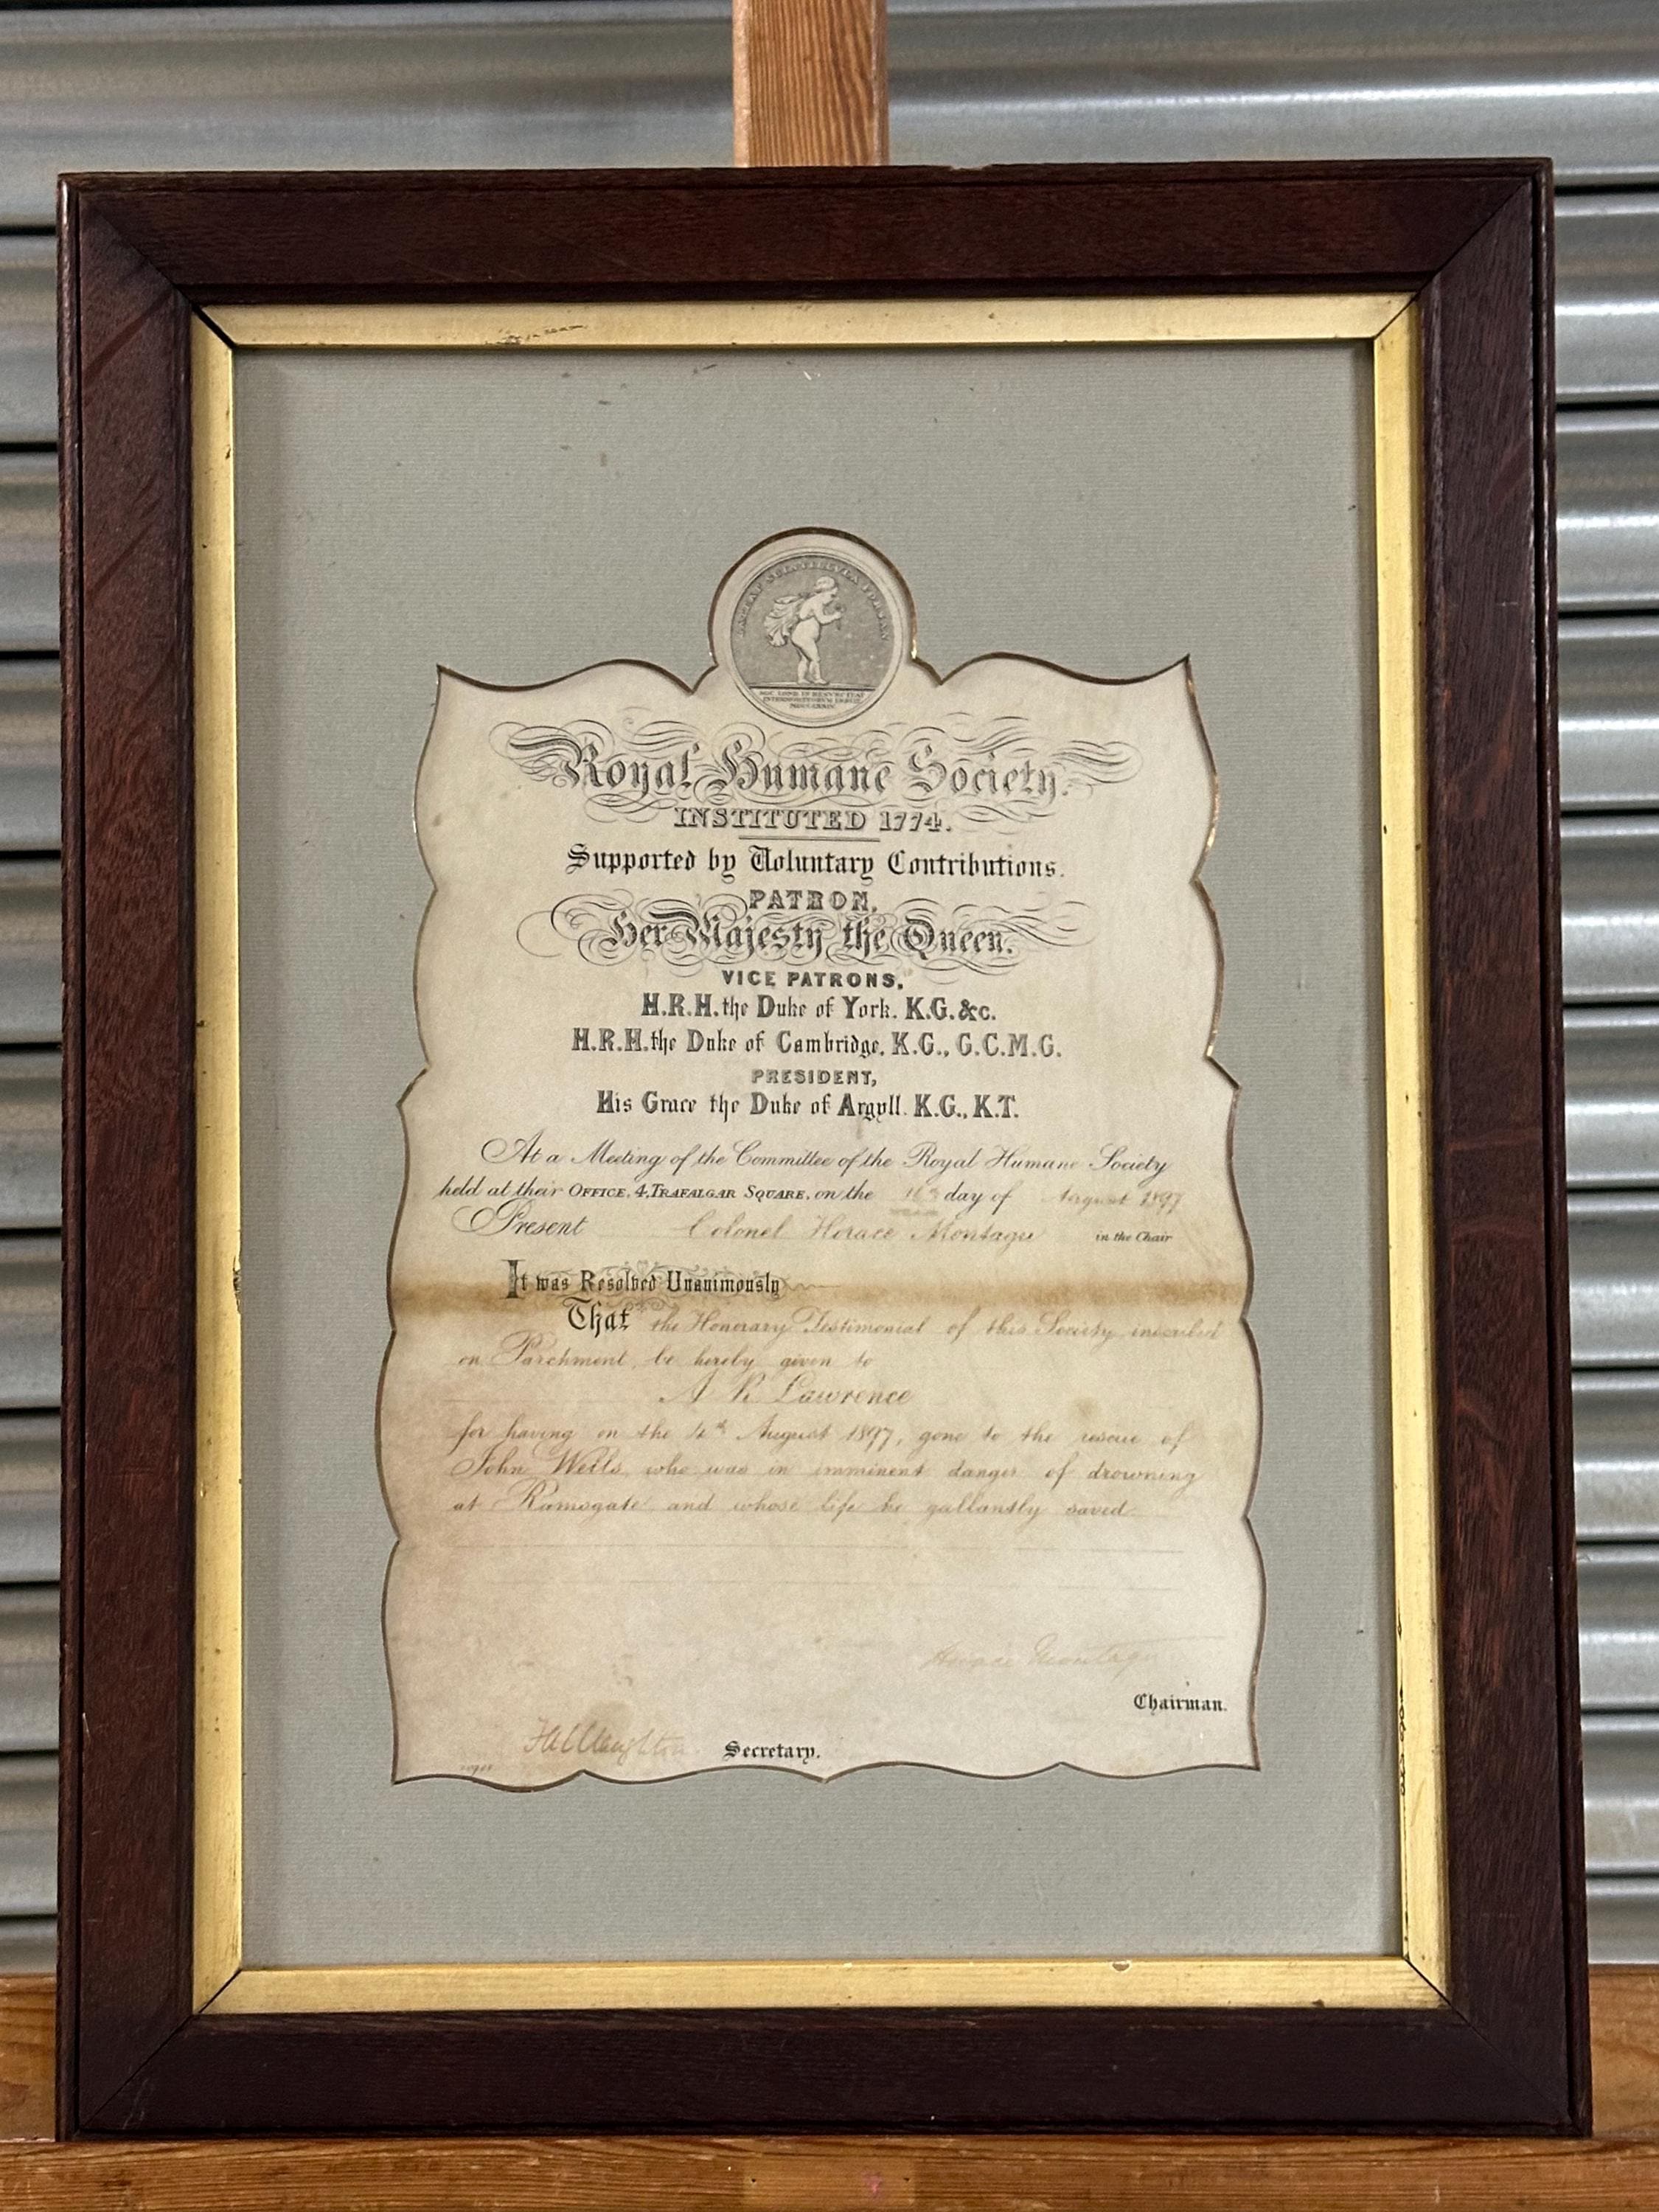 LATEAT SCINTILLVLA FORSAN
SOC. LOND. IN RESVSCITAT
INTERMORTVORVM INSTIT.
MDCCLXXIV
Royal Humane Society.
INSTITUTED 1774.
Supported by Voluntary Contributions.
PATRON,
Her Majesty the Queen.
VICE PATRONS,
H.R.H. the Duke of York. K.G. &c.
H.R.H. the Duke of Cambridge, K.G., G.C.M.G.
PRESIDENT,
His Grace the Duke of Argyll. K.G., K.T.
At a Meeting of the Committee of the Royal Humane Society
held at their OFFICE, 4, TRAFALGAR SQUARE, on the 16th day of August 1897
Present Colonel Horace Montagu in the Chair
It was Resolved Unanimously
That the Honorary Testimonial of this Society inscribed
on Parchment be hereby given to
A R Lawrence
for having on the 4th August 1897, gone to the rescue of
John Wells who was in imminent danger of drowning
at Ramsgate and whose life he gallantly saved
Horace Montagu
Chairman.
Secretary.